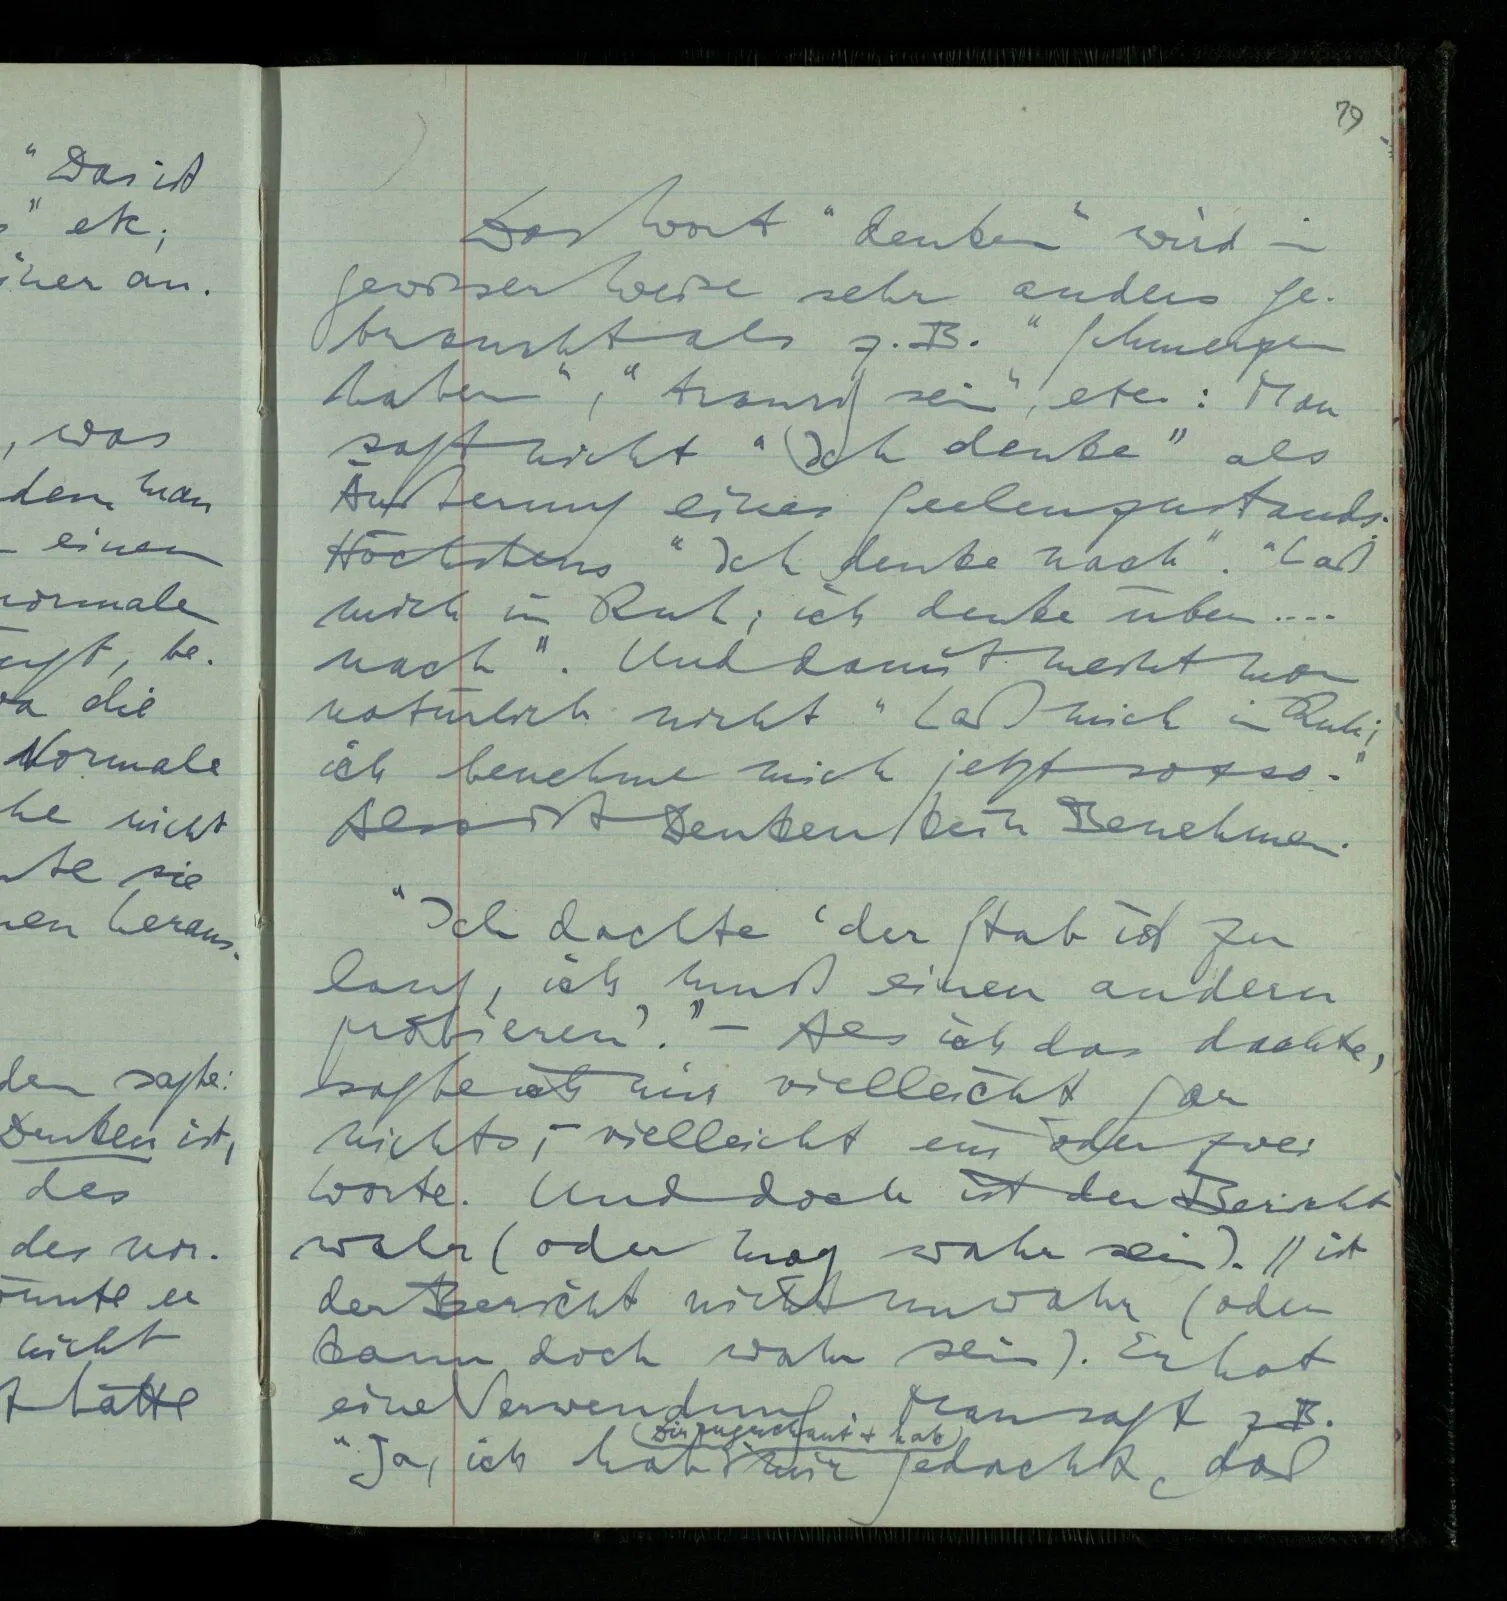 "Das ist
" etc;
einer an.
, was
dem man
einen
normale
be.
die
Normale
he nicht
sie
heraus.
den sagte:
Denken ist,
des
des vor.
könnte er
nicht
hätte
79
Das Wort "denken" wird in
gewisser Weise sehr anders ge-
braucht als z.B. "Schmerzen
haben", "traurig sein", etc.: Man
sagt nicht "Ich denke" als
Äußerung eines Seelenzustands.
Höchstens "Ich denke nach". "Laß
mich in Ruh, ich denke über ....
nach". Und damit meint man
natürlich nicht "Laß mich in Ruh;
ich benehme mich jetzt so & so."
Also ist Denken kein Benehmen.
"Ich dachte 'der Stab ist zu
lang, ich muß einen andern
probieren'." – Als ich das dachte,
sagte ich mir vielleicht gar
nichts, – vielleicht ein oder zwei
Worte. Und doch ist der Bericht
wahr (oder mag wahr sein). // ist
der Bericht nicht unwahr (oder
kann doch wahr sein). Er hat
eine Verwendung. Man sagt z.B.
(Dir zugeschaut & hab)
"Ja, ich hab mir gedacht, daß